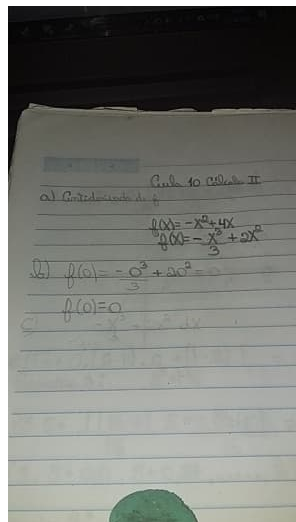 Aula 10 Cálculo II
a) Antiderivada de f
f(x) = -x² + 4x
f(x) = - x³/3 + 2x²
b) f(0) = -0³/3 + 20² = 0
f(0) = 0
c)